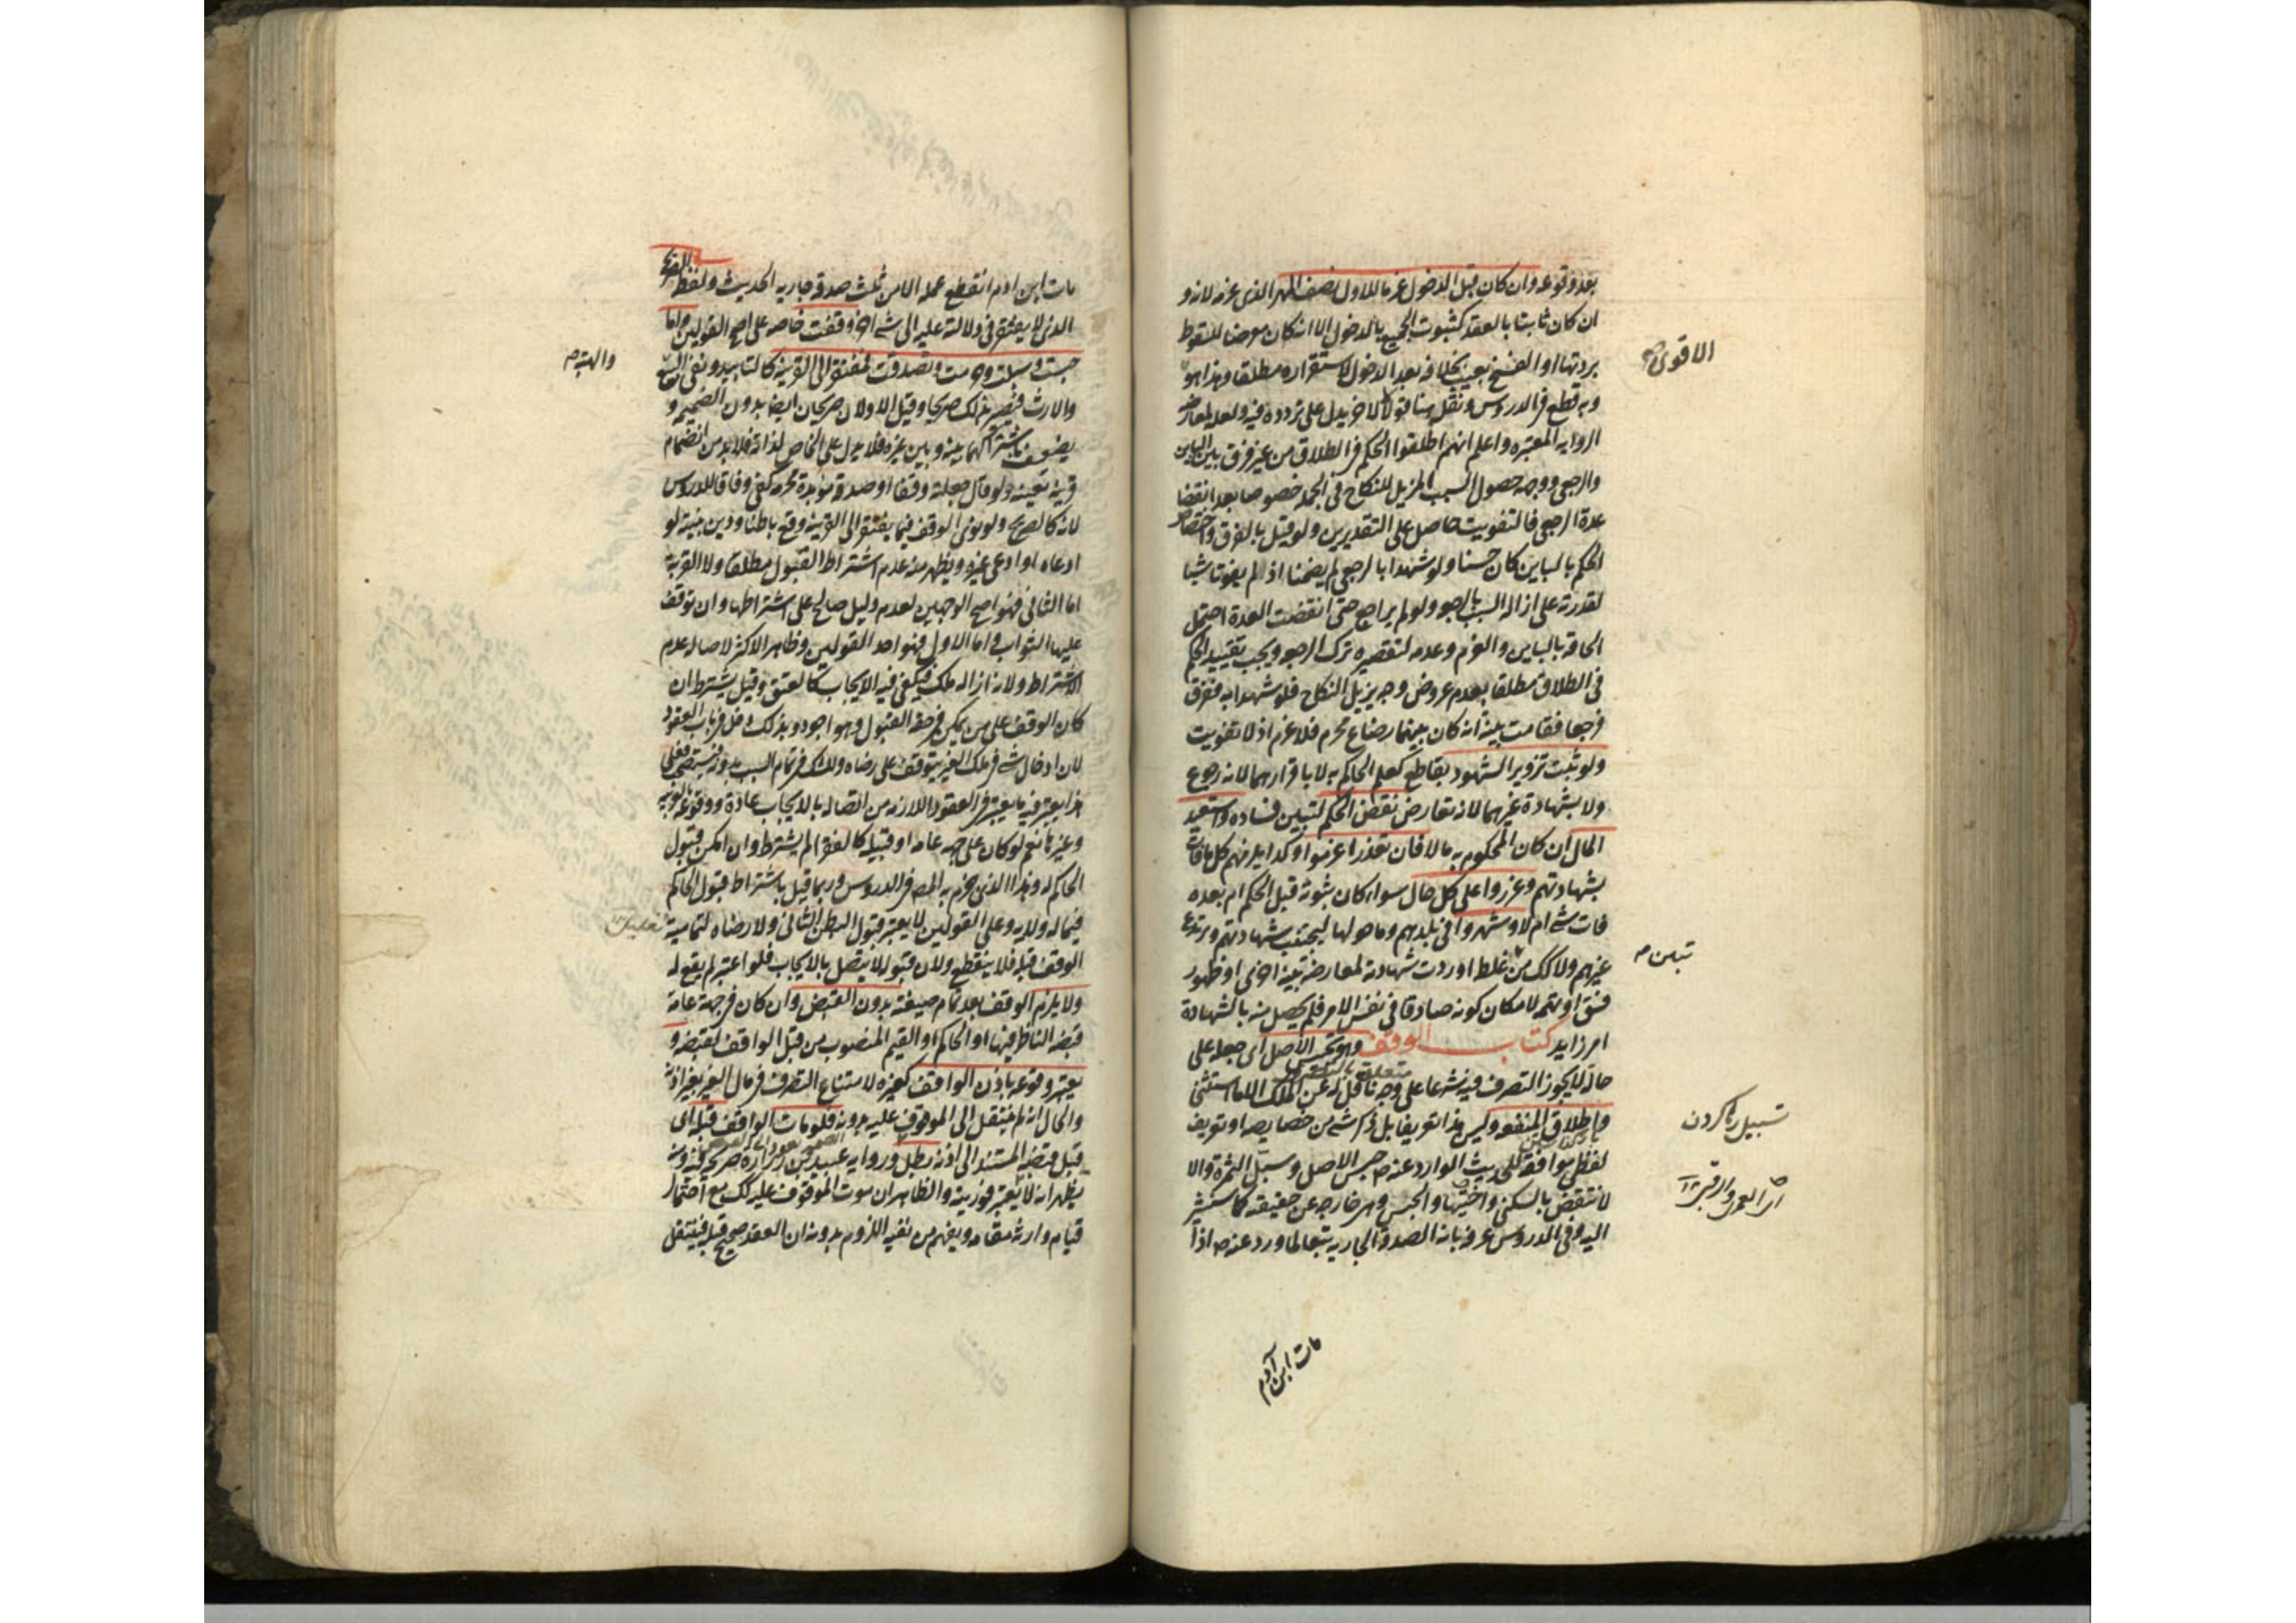 بعد وقوعه وان كان قبل الدخول غرما للاول نصف المهر الذى غرمه لانه و
ان كان ثابتا بالعقد كثبوت الجميع بالدخول الا انه كان معرضا للسقوط
بردتها او الفسخ بعيب بخلافه بعد الدخول لاستقراره مطلقا وهذا هو
الاقوى
وبه قطع فى الدروس ونقل هنا قولا لاخر يدل على تردده فيه ولعله لمعارضة
الرواية المعتبرة واعلم انهم اطلقوا الحكم فى الطلاق من غير فرق بين الباين
والرجعى ووجهه حصول السبب المزيل للنكاح فى الجملة خصوصا بعد انقضا
عدة الرجعى فالتفويت حاصل على التقديرين ولو قيل بالفرق واختصاص
الحكم بالباين كان حسنا ولو شهدا بالرجعى لم يضمنا اذ لم يفوتا شيئا
لقدرته على ازالة السبب بالرجوع ولو لم يراجع حتى انقضت العدة احتمل
الحاقه بالباين والغرم وعدمه لتقصيره بترك الرجوع ويجب تقييد الحكم
فى الطلاق مطلقا بعدم عروض وجه يزيل النكاح فلو شهدا به ففرق
فرجعا فقامت بينة انه كان بينهما رضاع محرم فلا غرم اذ لا تفويت
ولو ثبت تزوير الشهود بقاطع كعلم الحاكم به لا باقرارهما لانه رجوع
ولا بشهادة غيرهما لانه تعارض نقض الحكم لتبين فساده واستعيد
المال ان كان المحكوم به مالا فان تعذر اغرموا وكذا يلزمهم كل ما فات
بشهادتهم وعزروا على كل حال سواء كان ثبوته قبل الحكم ام بعده
فات شى ام لا وشهروا فى بلدهم وما حولها ليجتنب شهادتهم ويرتدع
غيرهم ولا كك من غلط او ردت شهادته لمعارضة بينة اخرى او ظهور
تبين
فسق او تهمة لامكان كونه صادقا فى نفس الامر فلم يحصل منه بالشهادة
امر زايد كتاب الوقف وهو تحبيس الاصل اى جعله على
حالة لا يجوز التصرف فيه شرعا على وجه ناقل له عن الملك الا ما استثنى
واطلاق المنفعة وليس هذا تعريفا بل ذكر شى من خصايصه او تعريف
تسبيل رها كردن
لفظى موافقة للحديث الوارد عنه ص حبس الاصل وسبل الثمرة والا
لانتقض بالسكنى واختيها والحبس وهى خارجة عن حقيقته كما سنشير
اى العمرى والرقبى
اليه وفى الدروس عرفه بانه الصدقة الجارية تبعا لما ورد عنه ص اذا
مات ابن آدم
مات ابن ادم انقطع عمله الا من ثلث صدقة جارية الحديث ولفظه الصريح
الذى لا يفتقر فى دلالته عليه الى شى اخر وقفت خاصة على اصح القولين واما
حبست وسبلت وحرمت وتصدقت فمفتقر الى القرينة كالتابيد ونفى البيع
والهبة
والارث فيصير بذلك صريحا وقيل الاولان صريحان ايضا بدون الضميمة و
يضعف باشتراكهما بينه وبين غيره فلا يدل على الخاص لذاته فلا بد من انضمام
قرينة تعينه ولو قال جعلته وقفا او صدقة مؤبدة محرمة كفى وفاقا للدروس
لانه كالصريح ولو نوى الوقف فيما يفتقر الى القرينة وقع باطنا ودين بنيته لو
ادعاه او ادعى غيره ويظهر منه عدم اشتراط القبول مطلقا ولا القربة
اما الثانى فهو اصح الوجهين لعدم دليل صالح على اشتراطها وان توقف
عليها الثواب واما الاول فهو احد القولين وظاهر الاكثر لاصالة عدم
الاشتراط ولانه ازالة ملك فيكفى فيه الايجاب كالعتق وقيل يشترط ان
كان الوقف على من يمكن فى حقه القبول وهو اجود وبذلك دخل فى باب العقود
لان ادخال شى فى ملك الغير يتوقف على رضاه وللشك فى تمام السبب بدونه فيستصحب فعلى
هذا يعتبر فيه ما يعتبر فى العقود اللازمة من اتصاله بالايجاب عادة ووقوعه بالعربية
وغيرها نعم لو كان على جهة عامة او قبيلة كالفقراء لم يشترط وان امكن قبول
الحاكم له وهذا الذى جزم به المص فى الدروس وربما قيل باشتراط قبول الحاكم
فيما له ولايه وعلى القولين لا يعتبر قبول البطن الثانى ولا رضاه لتمامية
الوقف قبله فلا ينقطع ولان قبوله لا يتصل بالايجاب فلو اعتبر لم يقع له
ولا يلزم الوقف بعد تمام صيغته بدون القبض وان كان فى جهة عامة
قبضه الناظر فيها او الحاكم او القيم المنصوب من قبل الواقف لقبضه و
يعتبر وقوعه باذن الواقف كغيره لامتناع التصرف فى مال الغير بغير اذنه
والحال انه لم ينتقل الى الموقوف عليه بدونه فلو مات الواقف قبله اى
قبل قبضه المستند الى اذنه بطل ورواية عبيد بن زرارة صريحة فيه ومنه
يظهر انه لا يعتبر فوريته والظاهر ان موت الموقوف عليه كك مع احتمال
قيام وارثه مقامه ويفهم من نفيه اللزوم بدونه ان العقد صحيح قبله فينتقل